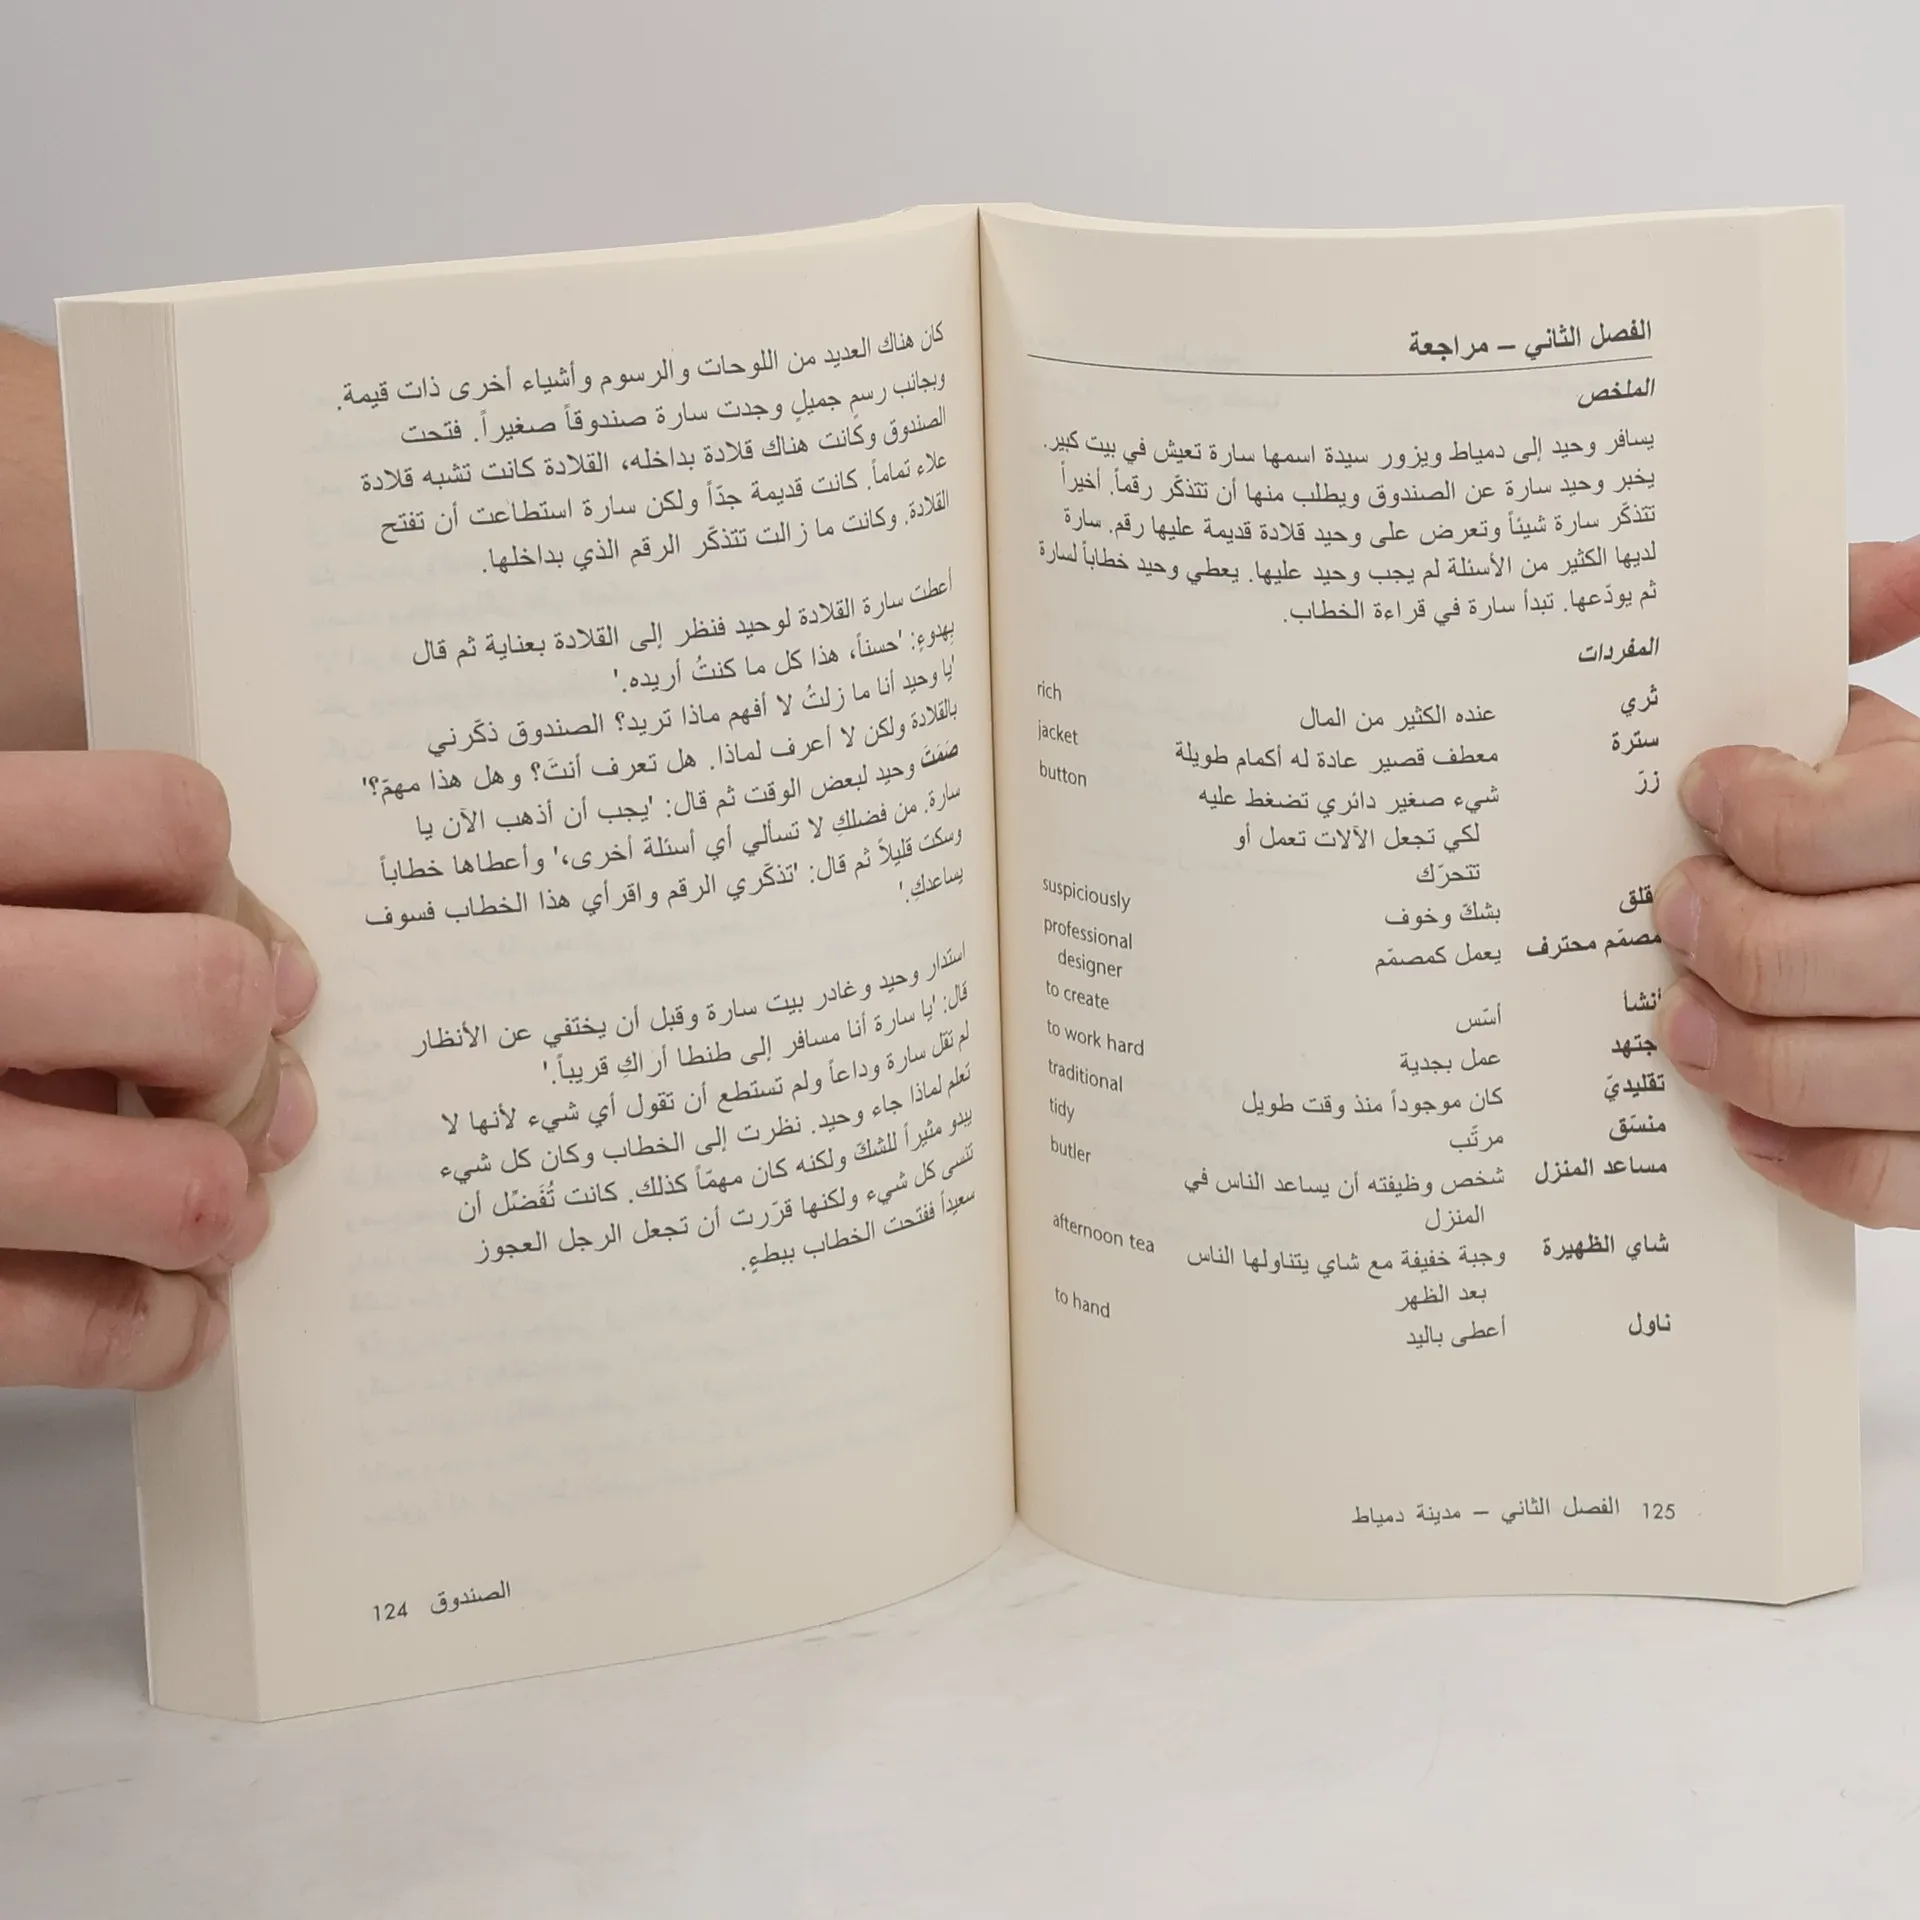 كان هناك العديد من اللوحات والرسوم وأشياء أخرى ذات قيمة.
وبجانب رسمٍ جميلٍ وجدت سارة صندوقاً صغيراً. فتحت
الصندوق وكانت هناك قلادة بداخله، القلادة كانت تشبه قلادة
علاء تماماً. كانت قديمة جدّاً ولكن سارة استطاعت أن تفتح
القلادة. وكانت ما زالت تتذكّر الرقم الذي بداخلها.
أعطت سارة القلادة لوحيد فنظر إلى القلادة بعناية ثم قال
بهدوءٍ: 'حسناً، هذا كل ما كنتُ أريده.'
'يا وحيد أنا ما زلتُ لا أفهم ماذا تريد؟ الصندوق ذكّرني
بالقلادة ولكن لا أعرف لماذا. هل تعرف أنتَ؟ وهل هذا مهمّ؟'
صَمَتَ وحيد لبعض الوقت ثم قال: 'يجب أن أذهب الآن يا
سارة. من فضلكِ لا تسألي أي أسئلة أخرى،' وأعطاها خطاباً
وسكت قليلاً ثم قال: 'تذكّري الرقم واقرأي هذا الخطاب فسوف
يساعدكِ.'
استدار وحيد وغادر بيت سارة وقبل أن يختفي عن الأنظار
قال: 'يا سارة أنا مسافر إلى طنطا أراكِ قريباً.'
لم تقل سارة وداعاً ولم تستطع أن تقول أي شيء لأنها لا
تعلم لماذا جاء وحيد. نظرت إلى الخطاب وكان كل شيء
يبدو مثيراً للشكّ ولكنه كان مهمّاً كذلك. كانت تُفَضِّل أن
تنسى كل شيء ولكنها قرّرت أن تجعل الرجل العجوز
سعيداً ففتحت الخطاب ببطءٍ.
124 الصندوق
الفصل الثاني – مراجعة
الملخص
يسافر وحيد إلى دمياط ويزور سيدة اسمها سارة تعيش في بيت كبير.
يخبر وحيد سارة عن الصندوق ويطلب منها أن تتذكّر رقماً. أخيراً
تتذكّر سارة شيئاً وتعرض على وحيد قلادة قديمة عليها رقم. سارة
لديها الكثير من الأسئلة لم يجب وحيد عليها. يعطي وحيد خطاباً لسارة
ثم يودّعها. تبدأ سارة في قراءة الخطاب.
المفردات
ثري عنده الكثير من المال rich
سترة معطف قصير عادة له أكمام طويلة jacket
زرّ شيء صغير دائري تضغط عليه button
لكي تجعل الآلات تعمل أو
تتحرّك
قلق بشكّ وخوف suspiciously
مصمّم محترف يعمل كمصمّم professional
designer
أنشأ أسّس to create
جتهد عمل بجدية to work hard
تقليديّ كان موجوداً منذ وقت طويل traditional
منسّق مرتّب tidy
مساعد المنزل شخص وظيفته أن يساعد الناس في butler
المنزل
شاي الظهيرة وجبة خفيفة مع شاي يتناولها الناس afternoon tea
بعد الظهر
ناول أعطى باليد to hand
125 الفصل الثاني – مدينة دمياط